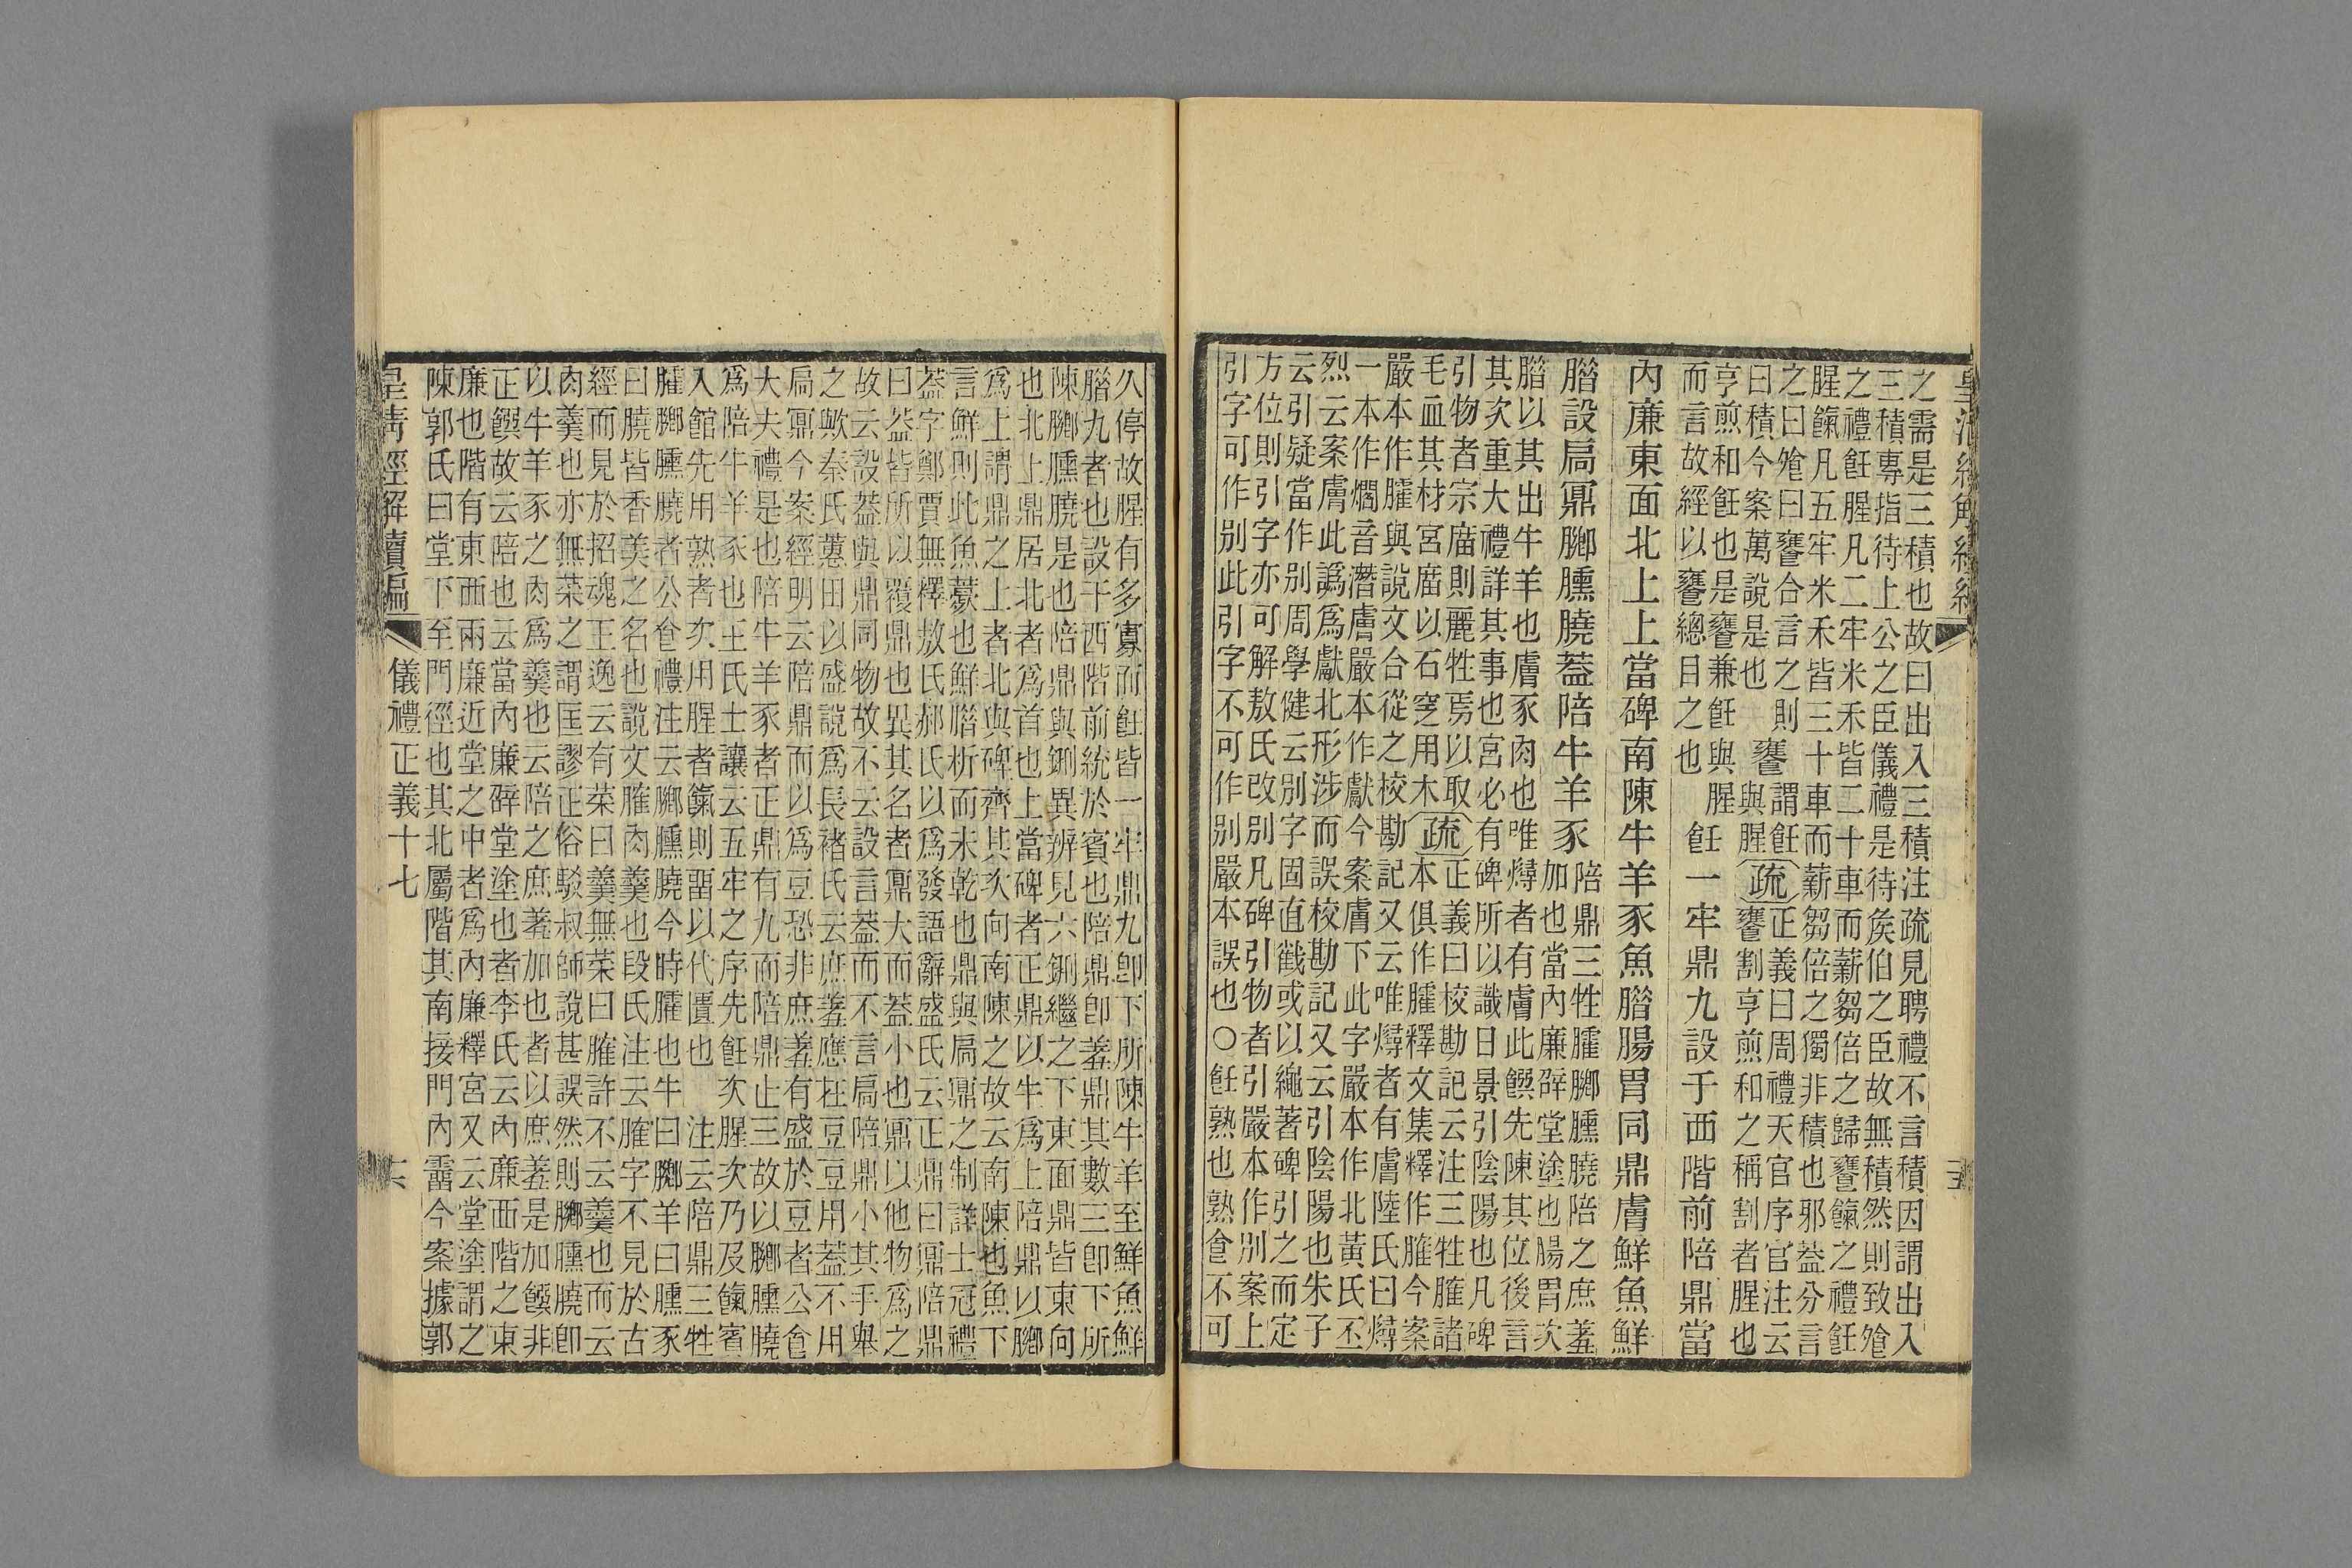 皇清經解續編
之需是三積也故曰出入三積注疏見聘禮不言積因謂出入
三積專指待上公之臣儀禮是待矦伯之臣故無積然則致飧
之禮飪腥凡二牢米禾皆二十車而薪芻倍之歸饔餼之禮飪
腥餼凡五牢米禾皆三十車而薪芻倍之獨非積也邪葢分言
之曰飧曰饔合言之則
曰積今案萬說是也
饔
謂飪
與腥
疏
正義曰周禮天官序官注云
饔割亨煎和之稱割者腥也
亨煎和飪也是饔兼飪與腥
而言故經以饔總目之也
飪一牢鼎九設于西階前陪鼎當
內廉東面北上上當碑南陳牛羊豕魚腊腸胃同鼎膚鮮魚鮮
腊設扃鼏膷臐膮葢陪牛羊豕
陪鼎三牲臛膷臐膮陪之庶羞
加也當內廉辟堂塗也腸胃次
腊以其出牛羊也膚豕肉也唯燖者有膚此饌先陳其位後言
其次重大禮詳其事也宮必有碑所以識日景引陰陽也凡碑
引物者宗廟則麗牲焉以取
毛血其材宮廟以石窆用木
疏
正義曰校勘記云注三牲臛諸
本俱作臛釋文集釋作臛今案
嚴本作臛與說文合從之校勘記又云唯燖者有膚陸氏曰燖
一本作爓音潛膚嚴本作獻今案膚下此字嚴本作北黃氏丕
烈云案膚此譌爲獻北形涉而誤校勘記又云引陰陽也朱子
云引疑當作别周學健云别字固直截或以繩著碑引之而定
方位則引字亦可解敖氏改别凡碑引物者引嚴本作别案上
引字可作别此引字不可作别嚴本誤也○飪熟也熟食不可
久停故腥有多寡而飪皆一牢鼎九卽下所陳牛羊至鮮魚鮮
腊九者也設于西階前統於賓也陪鼎卽羞鼎其數三卽下所
陳膷臐膮是也陪鼎與鉶異辨見六鉶繼之下東面鼎皆東向
也北上鼎居北者爲首也上當碑者正鼎以牛爲上陪鼎以膷
爲上謂鼎之上者北與碑齊其次向南陳之故云南陳也魚下
言鮮則此魚薨也鮮腊析而未乾也鼎與扃鼏之制詳士冠禮
葢字鄭賈無釋敖氏郝氏以爲發語辭盛氏云正鼎曰鼏陪鼎
曰葢皆所以覆鼎也異其名者鼏大而葢小也鼏以他物爲之
故云設葢與鼎同物故不云設言葢而不言扃陪鼎小其手舉
之歟秦氏蕙田以盛說爲長褚氏云庶羞應在豆豆用葢不用
扃鼏今案經明云陪鼎而以爲豆恐非庶羞有盛於豆者公食
大夫禮是也陪牛羊豕者正鼎有九而陪鼎止三故以膷臐膮
爲陪牛羊豕也王氏士讓云五牢之序先飪次腥次乃及餼賓
入館先用熟者次用腥者餼則畱以代匱也　注云陪鼎三牲
臛膷臐膮者公食禮注云膷臐膮今時臛也牛曰膷羊曰臐豕
曰膮皆香美之名也說文臛肉羹也段氏注云臛字不見於古
經而見於招魂王逸云有菜曰羹無菜曰臛許不云羹也而云
肉羹也亦無菜之謂匡謬正俗駁叔師說甚誤然則膷臐膮卽
以牛羊豕之肉爲羹也云陪之庶羞加也者以庶羞是加饌非
正饌故云陪也云當內廉辟堂塗也者李氏云內亷西階之東
廉也階有東西兩廉近堂之中者爲內廉釋宮又云堂塗謂之
陳郭氏曰堂下至門徑也其北屬階其南接門內霤今案據郭
皇清經解續編　儀禮正義十七